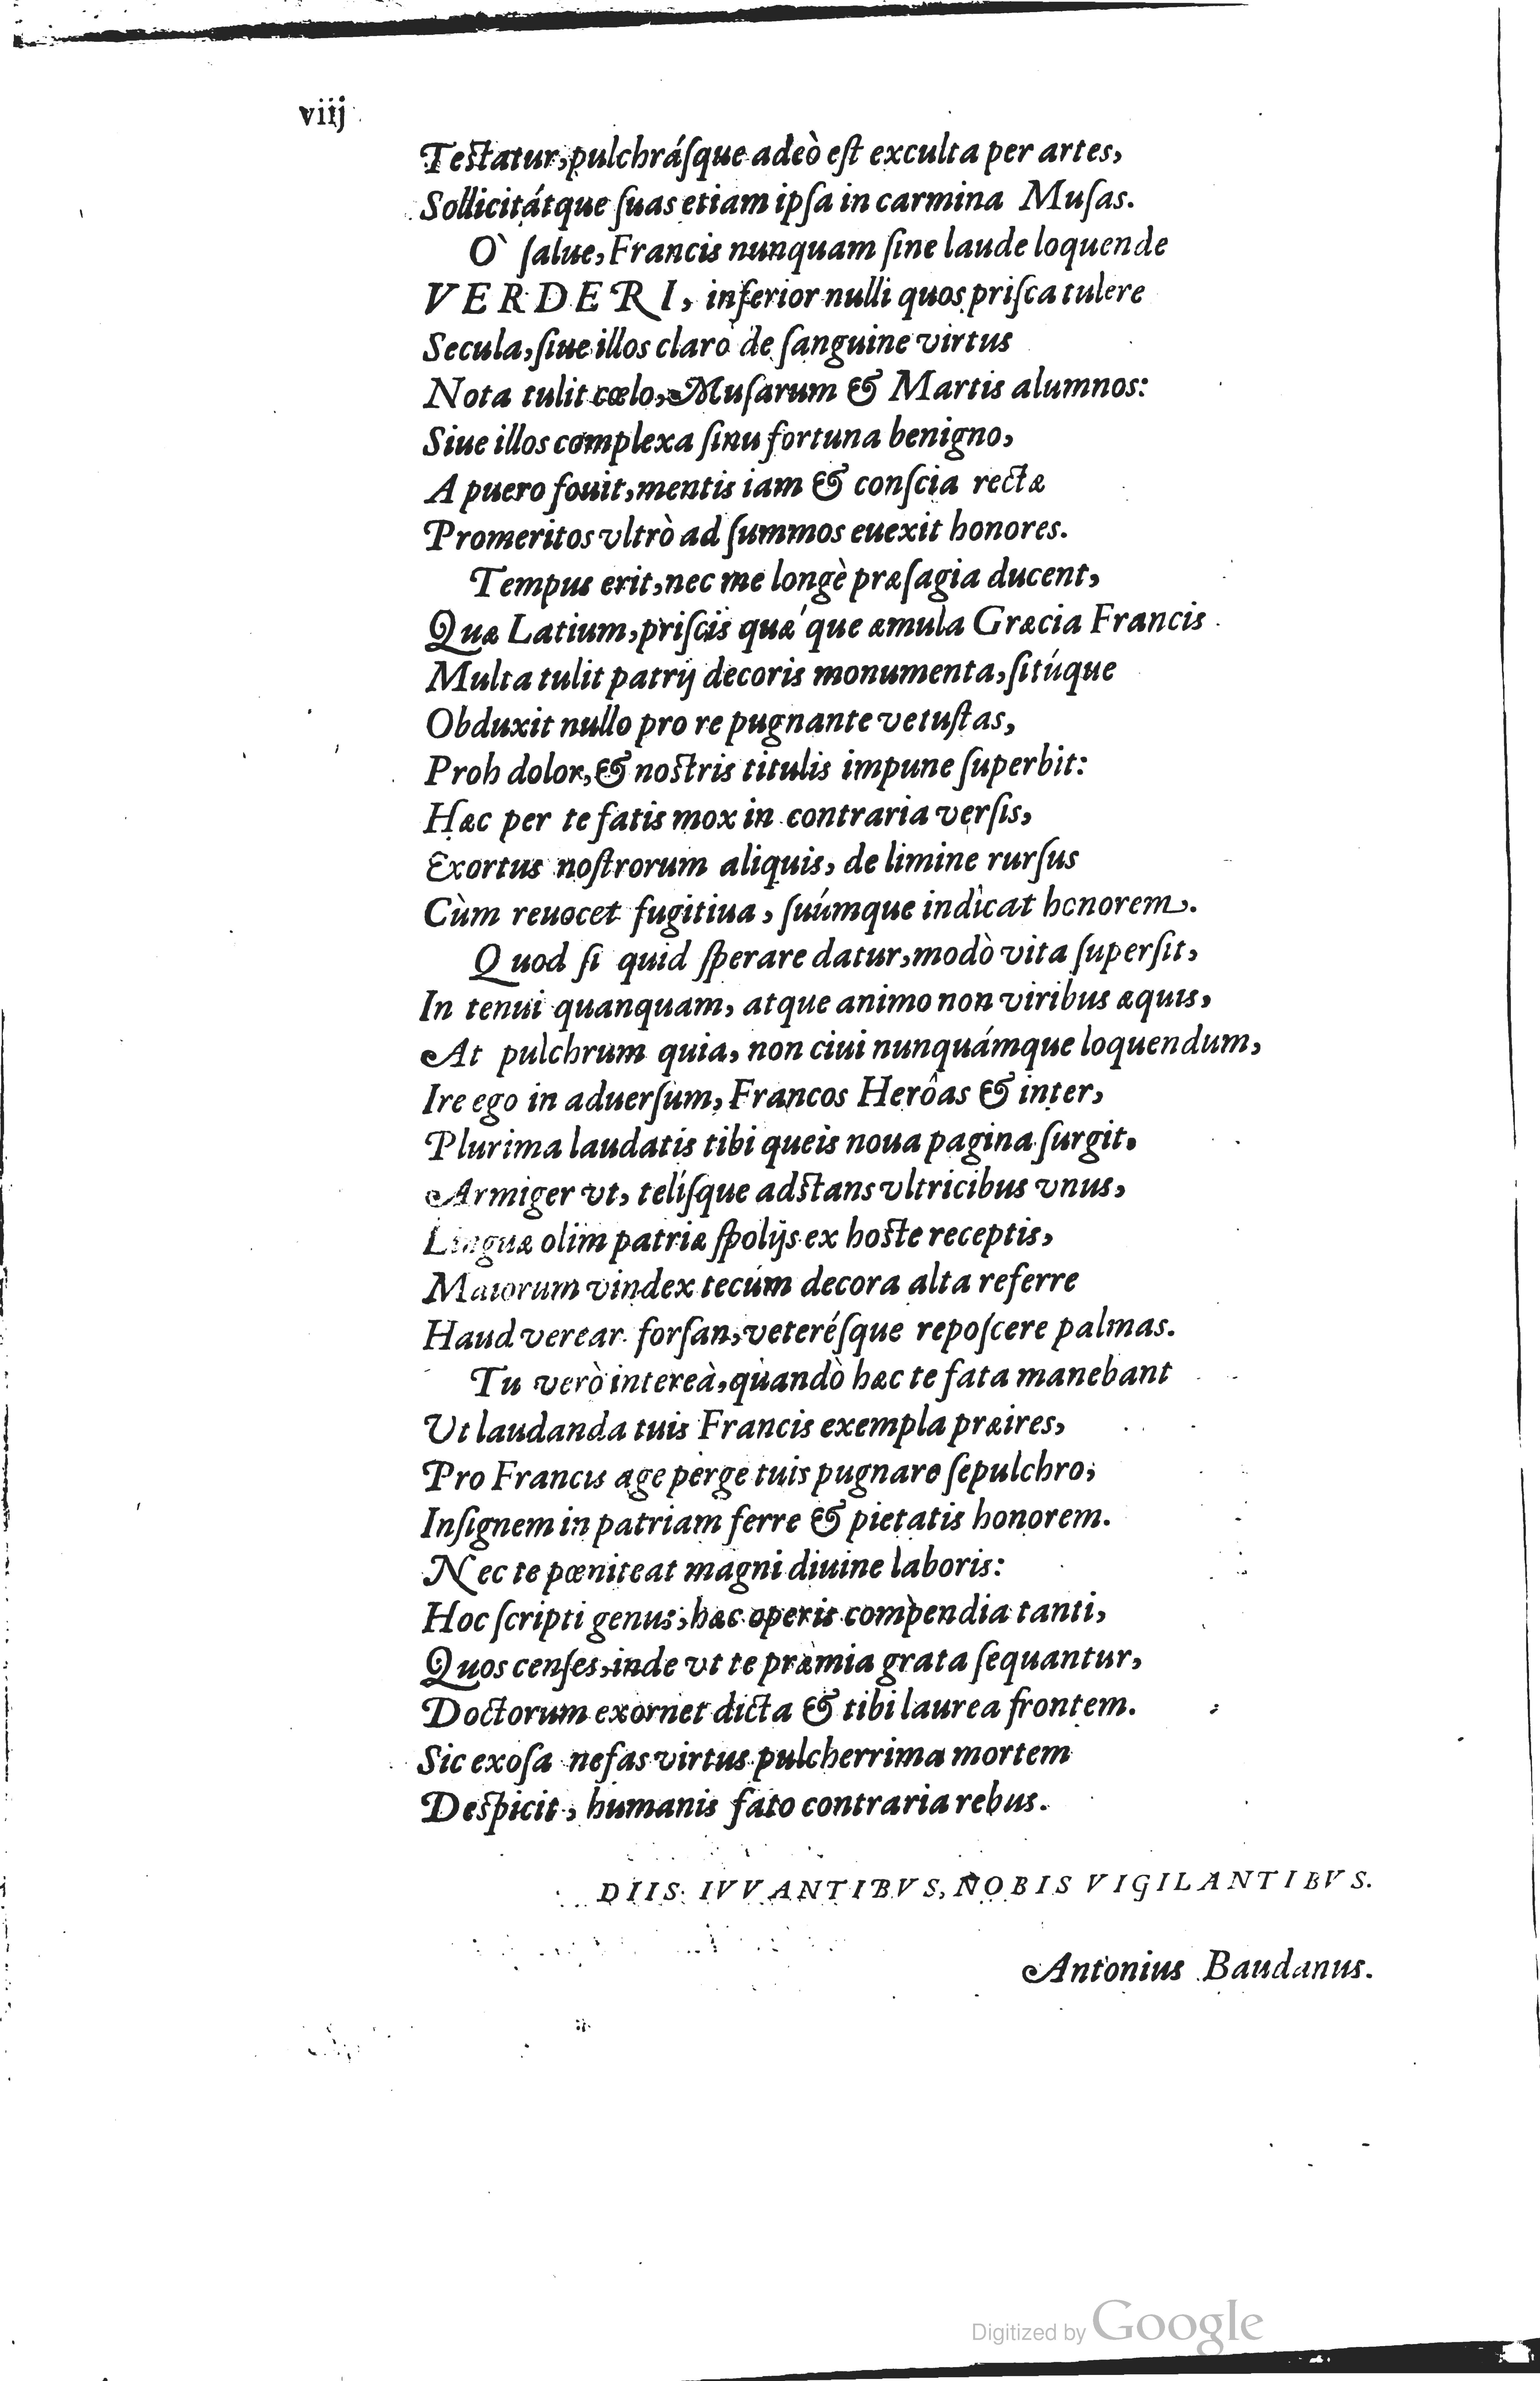 viij
Testatur, pulchrásque adeò est exculta per artes,
Sollicitátque suas etiam ipsa in carmina Musas.
O` salue, Francis nunquam sine laude loquende
VERDERI, inferior nulli quos prisca tulere
Secula, siue illos claro de sanguine virtus
Nota tulit cœlo, Musarum & Martis alumnos:
Siue illos complexa sinu fortuna benigno,
A puero fouit, mentis iam & conscia rectæ
Promeritos vltrò ad summos euexit honores.
Tempus erit, nec me longè præsagia ducent,
Quæ Latium, priscis quæ'que æmula Græcia Francis
Multa tulit patrij decoris monumenta, sitúque
Obduxit nullo pro re pugnante vetustas,
Proh dolor, & nostris titulis impune superbit:
Hæc per te fatis mox in contraria versis,
Exortus nostrorum aliquis, de limine rursus
Cùm reuocet fugitiua, suúmque indicat honorem.
Quod si quid sperare datur, modò vita supersit,
In tenui quanquam, atque animo non viribus æquis,
At pulchrum quia, non ciui nunquámque loquendum,
Ire ego in aduersum, Francos Herôas & inter,
Plurima laudatis tibi queis noua pagina surgit.
Armiger vt, telísque adstans vltricibus vnus,
Linguæ olim patriæ spolijs ex hoste receptis,
Maiorum vindex tecúm decora alta referre
Haud verear forsan, veterésque reposcere palmas.
Tu verò intereà, quandò hæc te fata manebant
Ut laudanda tuis Francis exempla præires,
Pro Francis age perge tuis pugnare sepulchro;
Insignem in patriam ferre & pietatis honorem.
Nec te pœniteat magni diuine laboris:
Hoc scripti genus, hæc operis compendia tanti,
Quos censes, inde vt te præmia grata sequantur,
Doctorum exornet dicta & tibi laurea frontem.
Sic exosa nefas virtus pulcherrima mortem
Despicit, humanis fato contraria rebus.
DIIS IVVANTIBVS, NOBIS VIGILANTIBVS.
Antonius Baudanus.
Digitized by Google